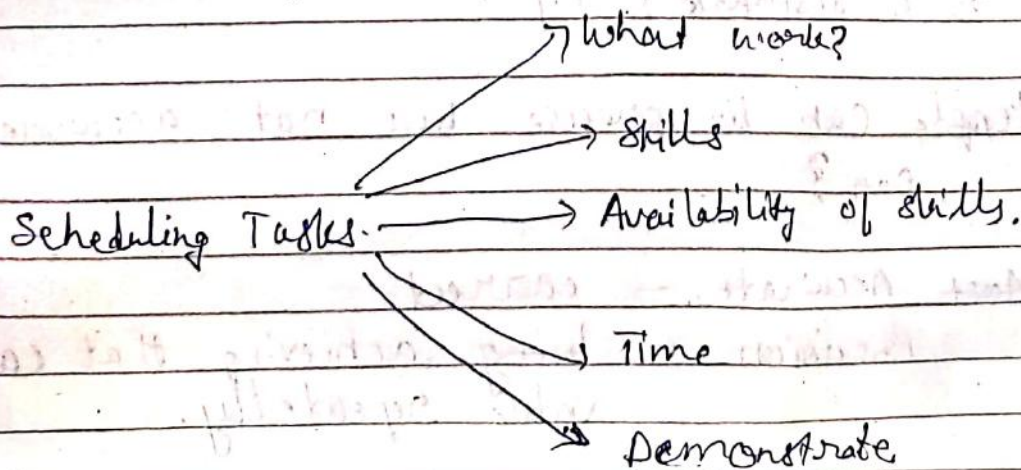 What work?
Skills
Scheduling Tasks.
Availability of skills.
Time
Demonstrate